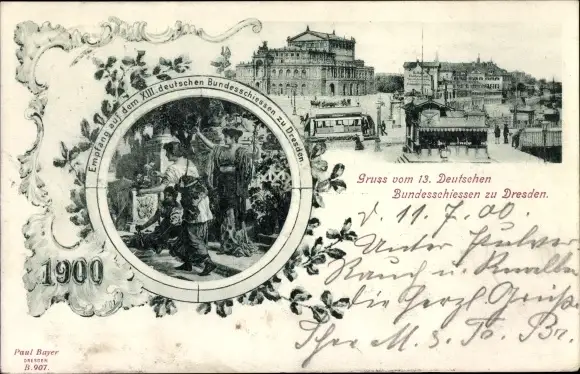 Empfang auf dem XIII. deutschen Bundesschiessen zu Dresden.
1900
Gruss vom 13. Deutschen
Bundesschiessen zu Dresden.
d. 11.7.00.
Unter Pulver
Rauch u. Knall
die herzl. Grüße
Ihr M. S. Br.
Paul Bayer
DRESDEN
B. 907.